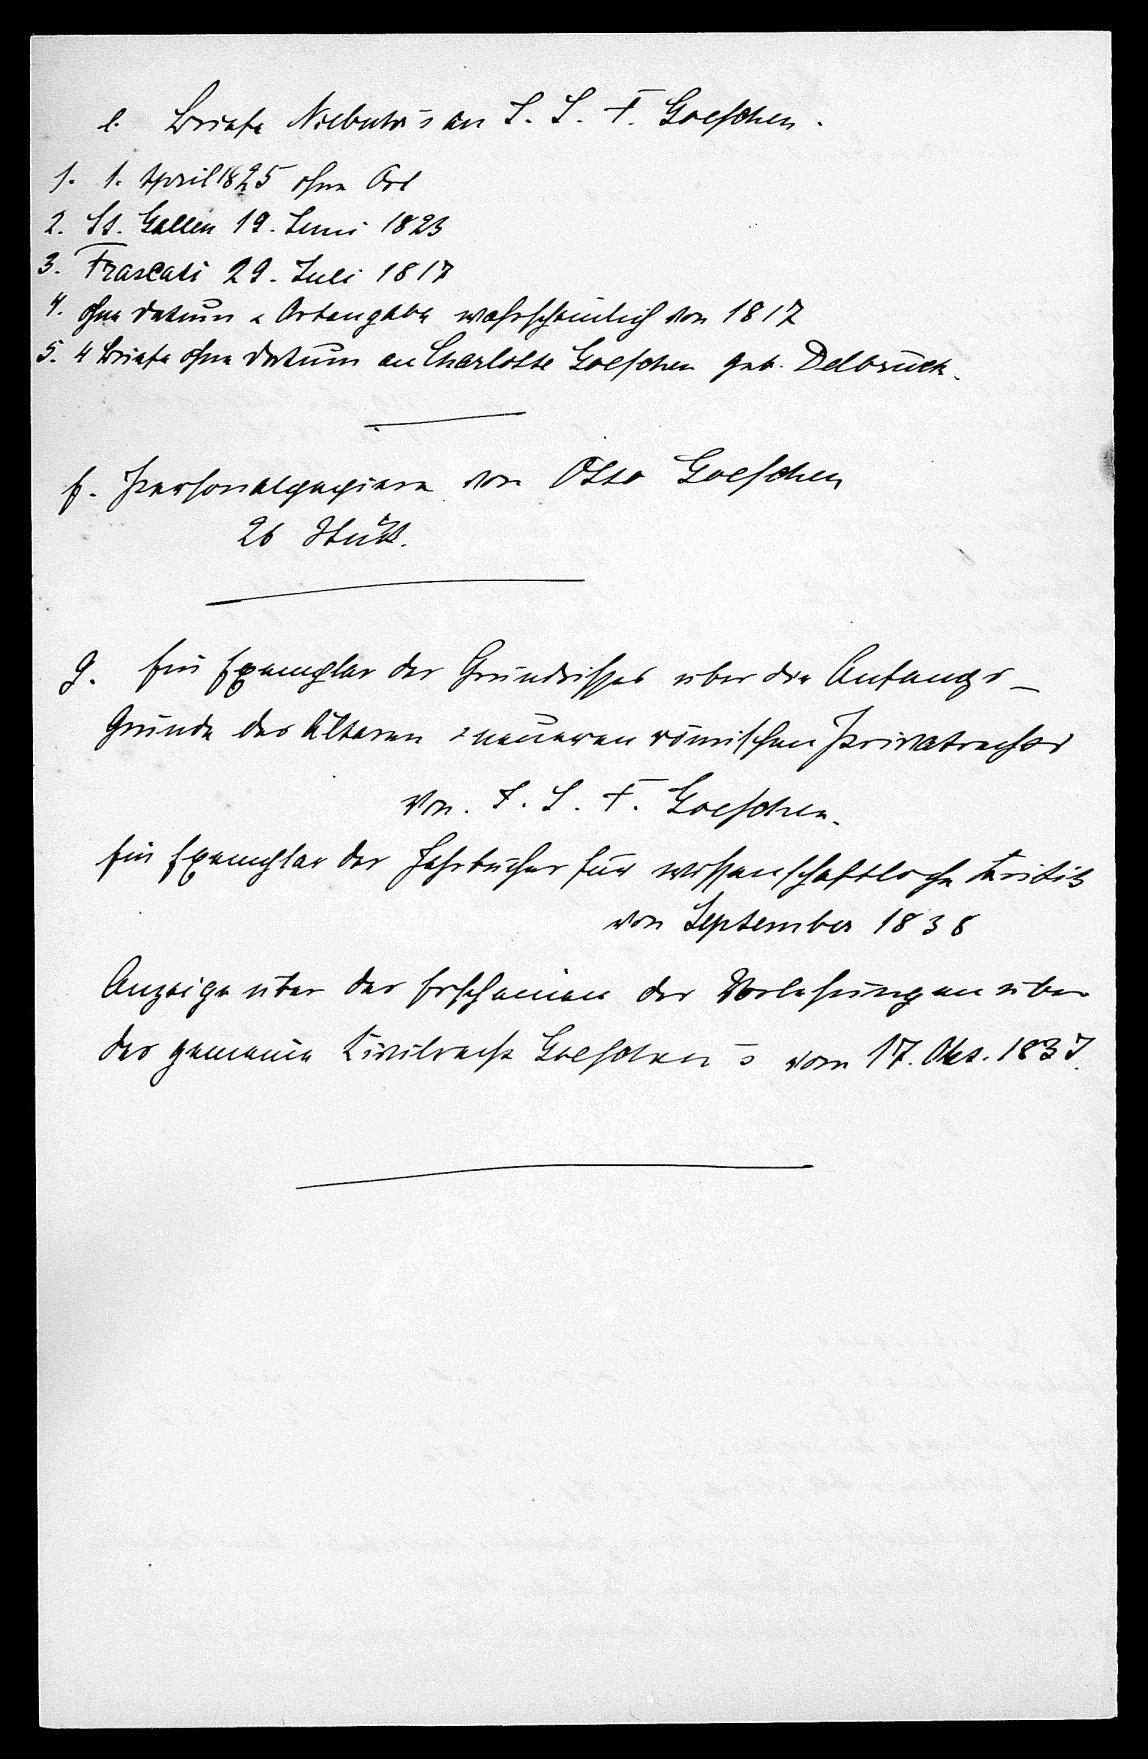 e. Briefe Niebuhr's an J. L. F. Goeschen.
1. 1. April 1825 ohne Ort
2. St. Gallen 19. Juni 1823
3. Frascati 29. Juli 1817
4. ohne Datum u Ortangabe wahrscheinlich von 1817
5. 4 Briefe ohne Datum an Charlotte Goeschen geb. Delbrück.
f. Personalpapiere von Otto Goeschen
26 Stück.
g. Ein Exemplar des Grundrisses über die Anfangs-
Gründe des älteren u neueren römischen Privatrechts
von. J. L. F. Goeschen.
Ein Exemplar der Jahrbücher für wissenschaftliche Kritik
von September 1838
Anzeige über das Erscheinen der Vorlesungen über
das gemeine Civilrecht Goeschen's vom 17. Okt. 1837.